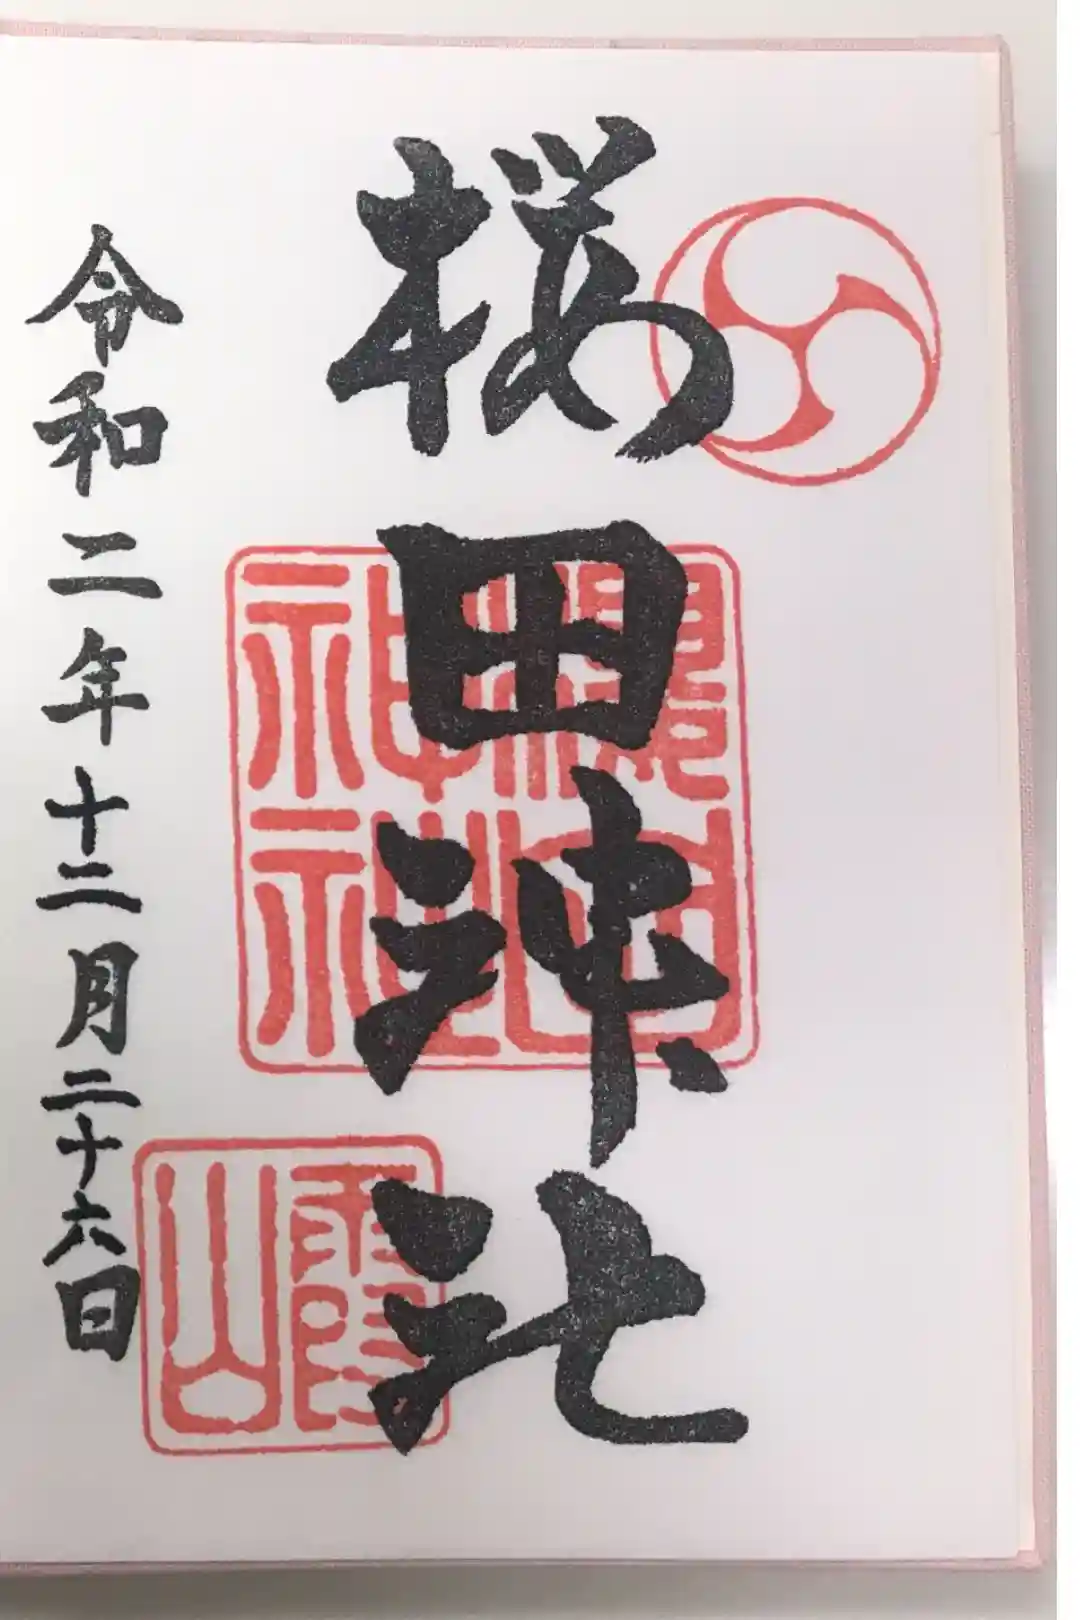 桜田神社
櫻田
神社
霞山
令和二年十二月二十六日